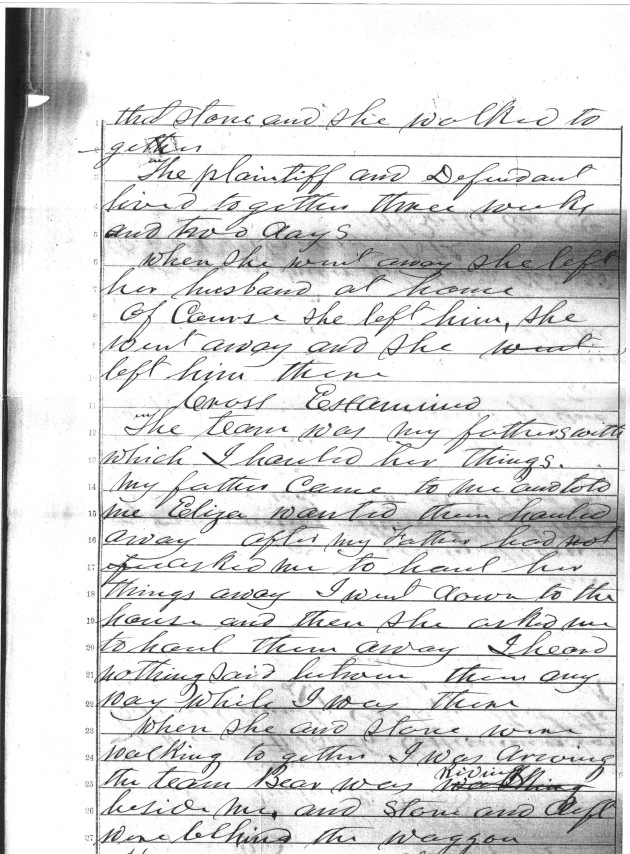 that stone and she walked to
gether
The plaintiff and Defendant
lived together three weeks
and two days
when she went away she left
her husband at home
Of Course she left him, she
went away and she went
left him there
Cross Examined
The team was my fathers with
which I hauled her things.
My father Came to me and told
me Eliza wanted them hauled
away after my Father had not
asked me to haul her
things away I went down to the
house and then she asked me
to haul them away I heard
nothing said between them any
way while I was there
when she and stone were
walking to gether I was driving
the team Bear was Riding walking
beside me, and Stone and
were behind the waggon